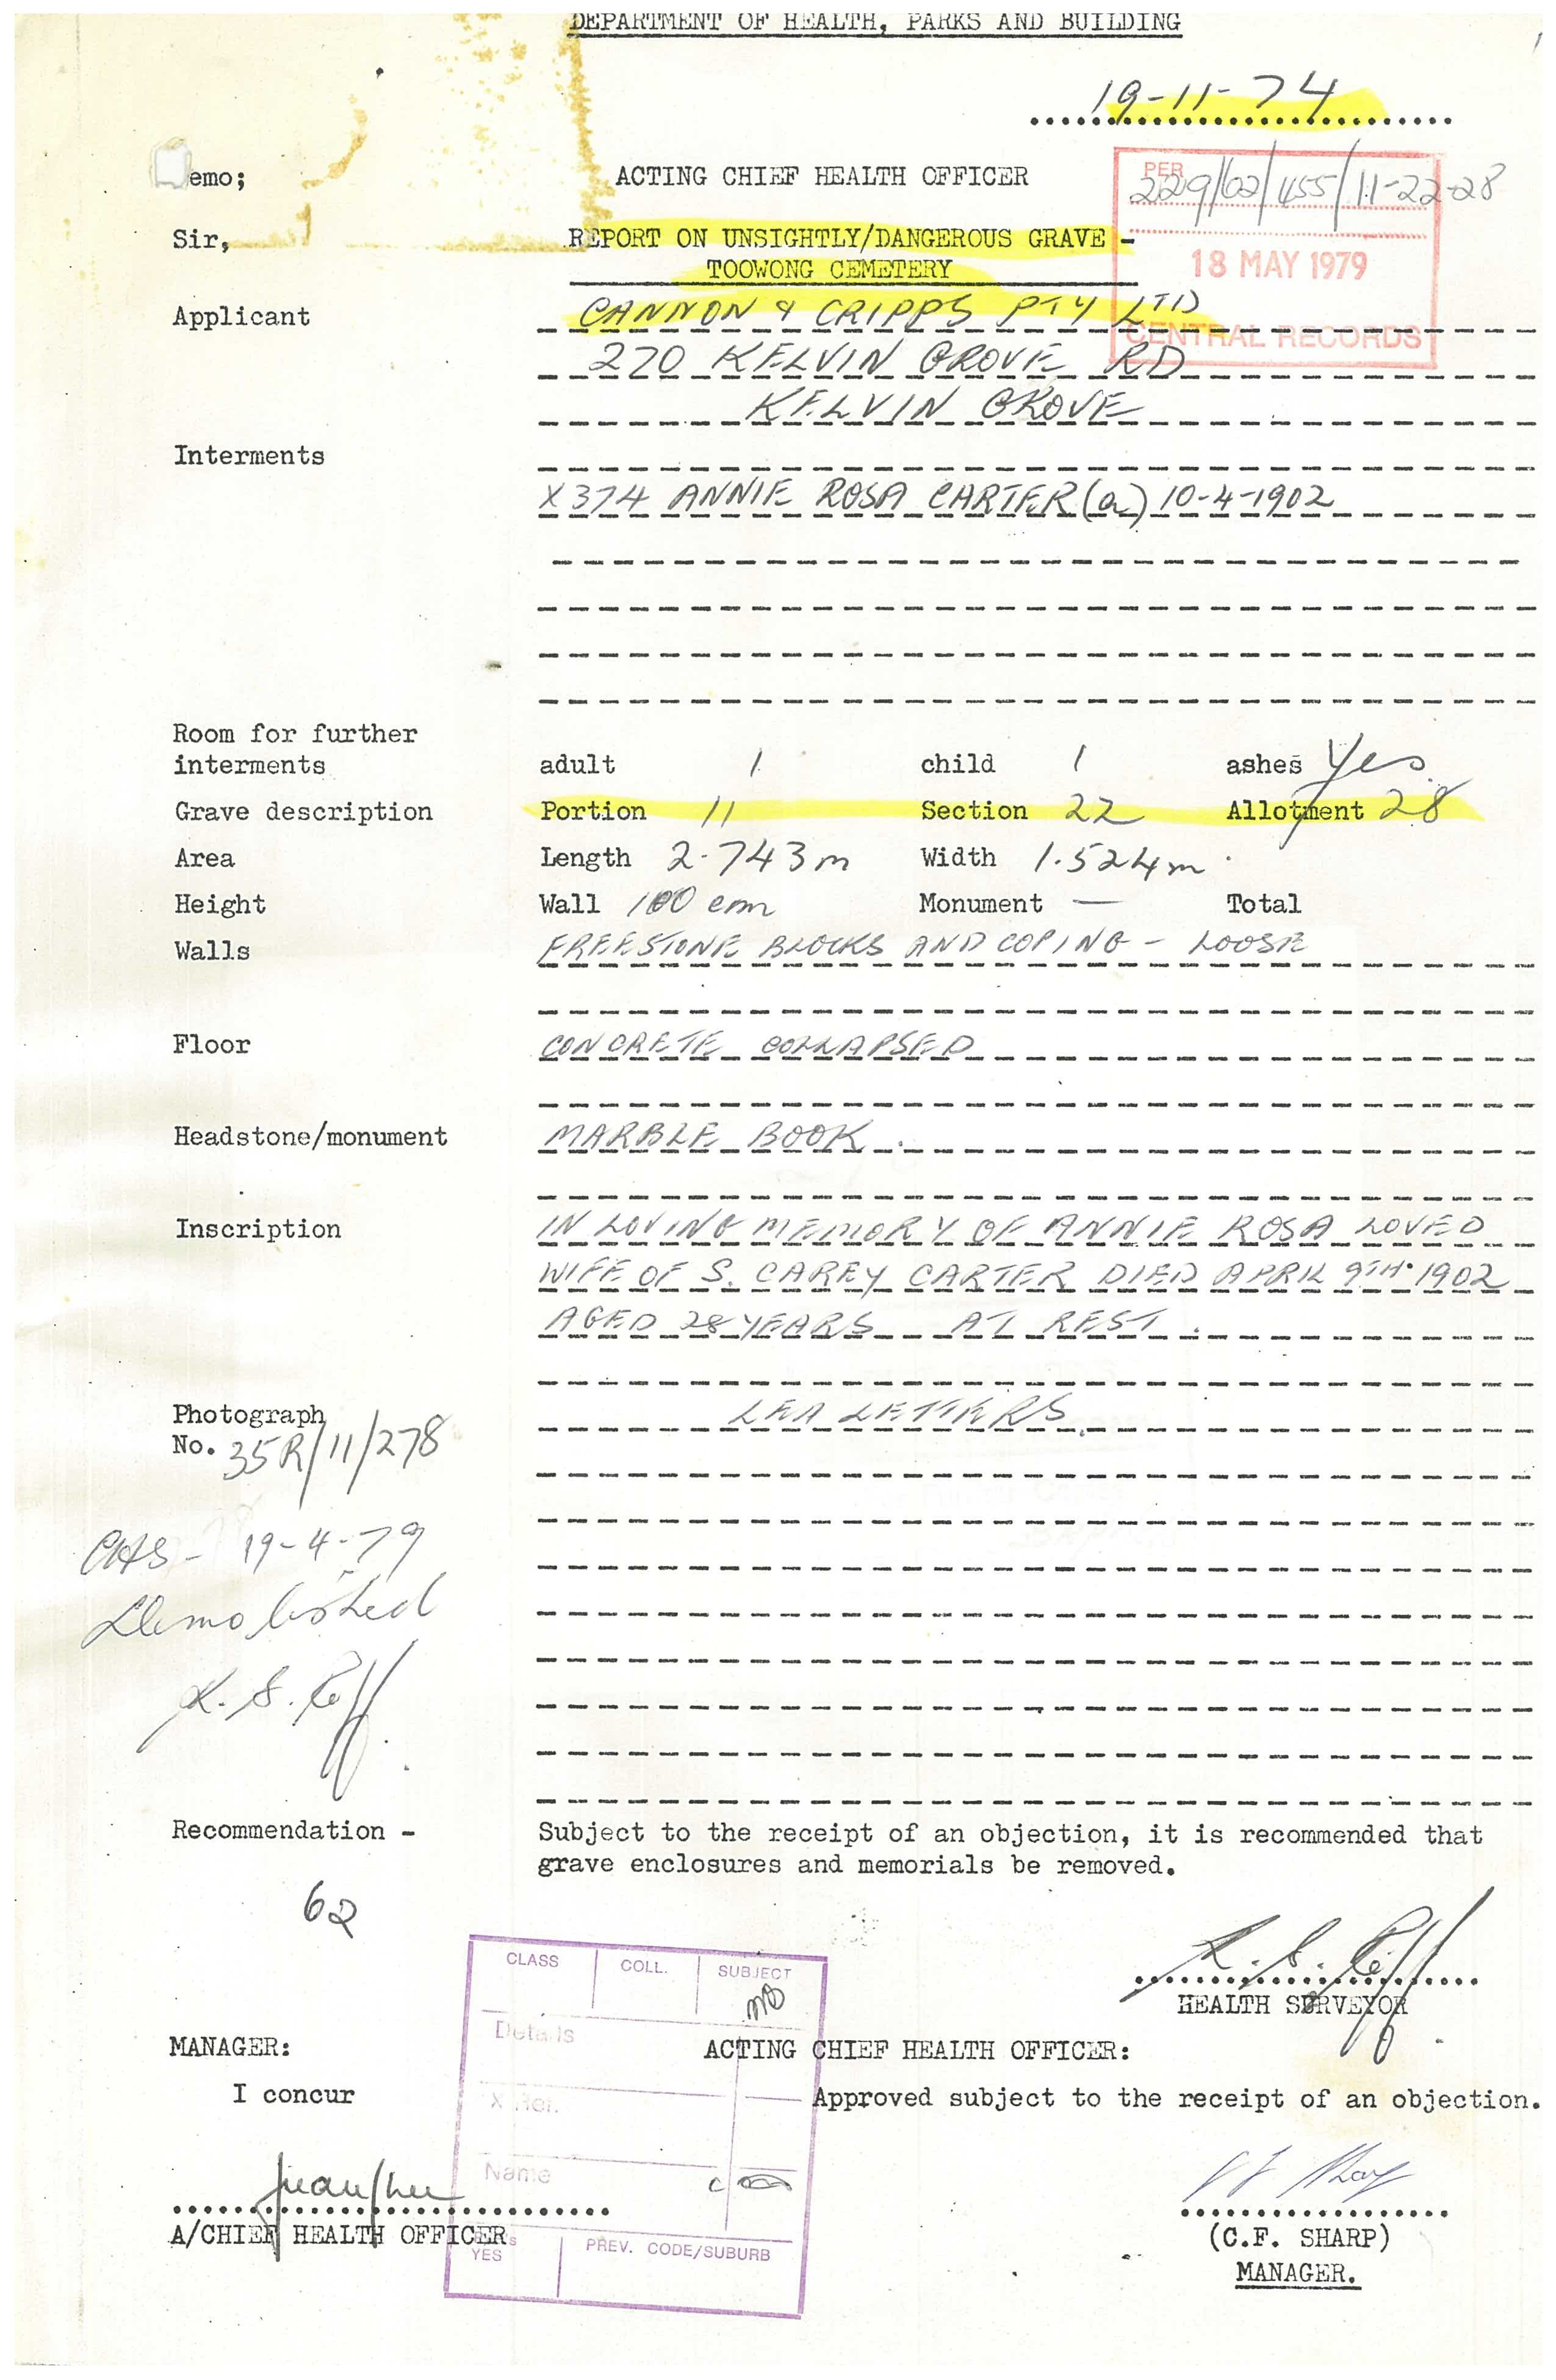 DEPARTMENT OF HEALTH, PARKS AND BUILDING
19-11-74
emo; ACTING CHIEF HEALTH OFFICER
PER
229/62/455/11-22-28
18 MAY 1979
CENTRAL RECORDS
Sir, REPORT ON UNSIGHTLY/DANGEROUS GRAVE -
TOOWONG CEMETERY
Applicant CANNON & CRIPPS PTY LTD
270 KELVIN GROVE RD
KELVIN GROVE
Interments
X374 ANNIE ROSA CARTER (a) 10-4-1902
Room for further
interments adult 1 child 1 ashes Yes
Grave description Portion 11 Section 22 Allotment 28
Area Length 2.743m Width 1.524m
Height Wall 100 cm Monument — Total
Walls FREESTONE BLOCKS AND COPING - LOOSE
Floor CONCRETE COLLAPSED
Headstone/monument MARBLE BOOK.
Inscription IN LOVING MEMORY OF ANNIE ROSA LOVED
WIFE OF S. CAREY CARTER DIED APRIL 9TH. 1902
AGED 28 YEARS AT REST.
Photograph LEA LETTERS
No. 35R/11/278
CHS - 19-4-79
Demolished
Recommendation - Subject to the receipt of an objection, it is recommended that
grave enclosures and memorials be removed.
62
HEALTH SURVEYOR
CLASS COLL. SUBJECT
Details
X Ref.
Name
YES PREV. CODE/SUBURB
MANAGER: ACTING CHIEF HEALTH OFFICER:
I concur Approved subject to the receipt of an objection.
A/CHIEF HEALTH OFFICER (C.F. SHARP)
MANAGER.